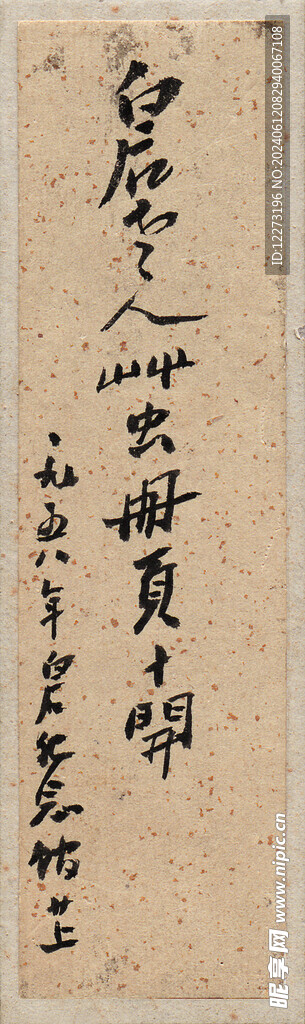 白石老人艸虫冊頁十開
一九五八年白石纪念馆廿上
ID:12273196 NO:20240612082940067108
昵享网 www.nipic.cn